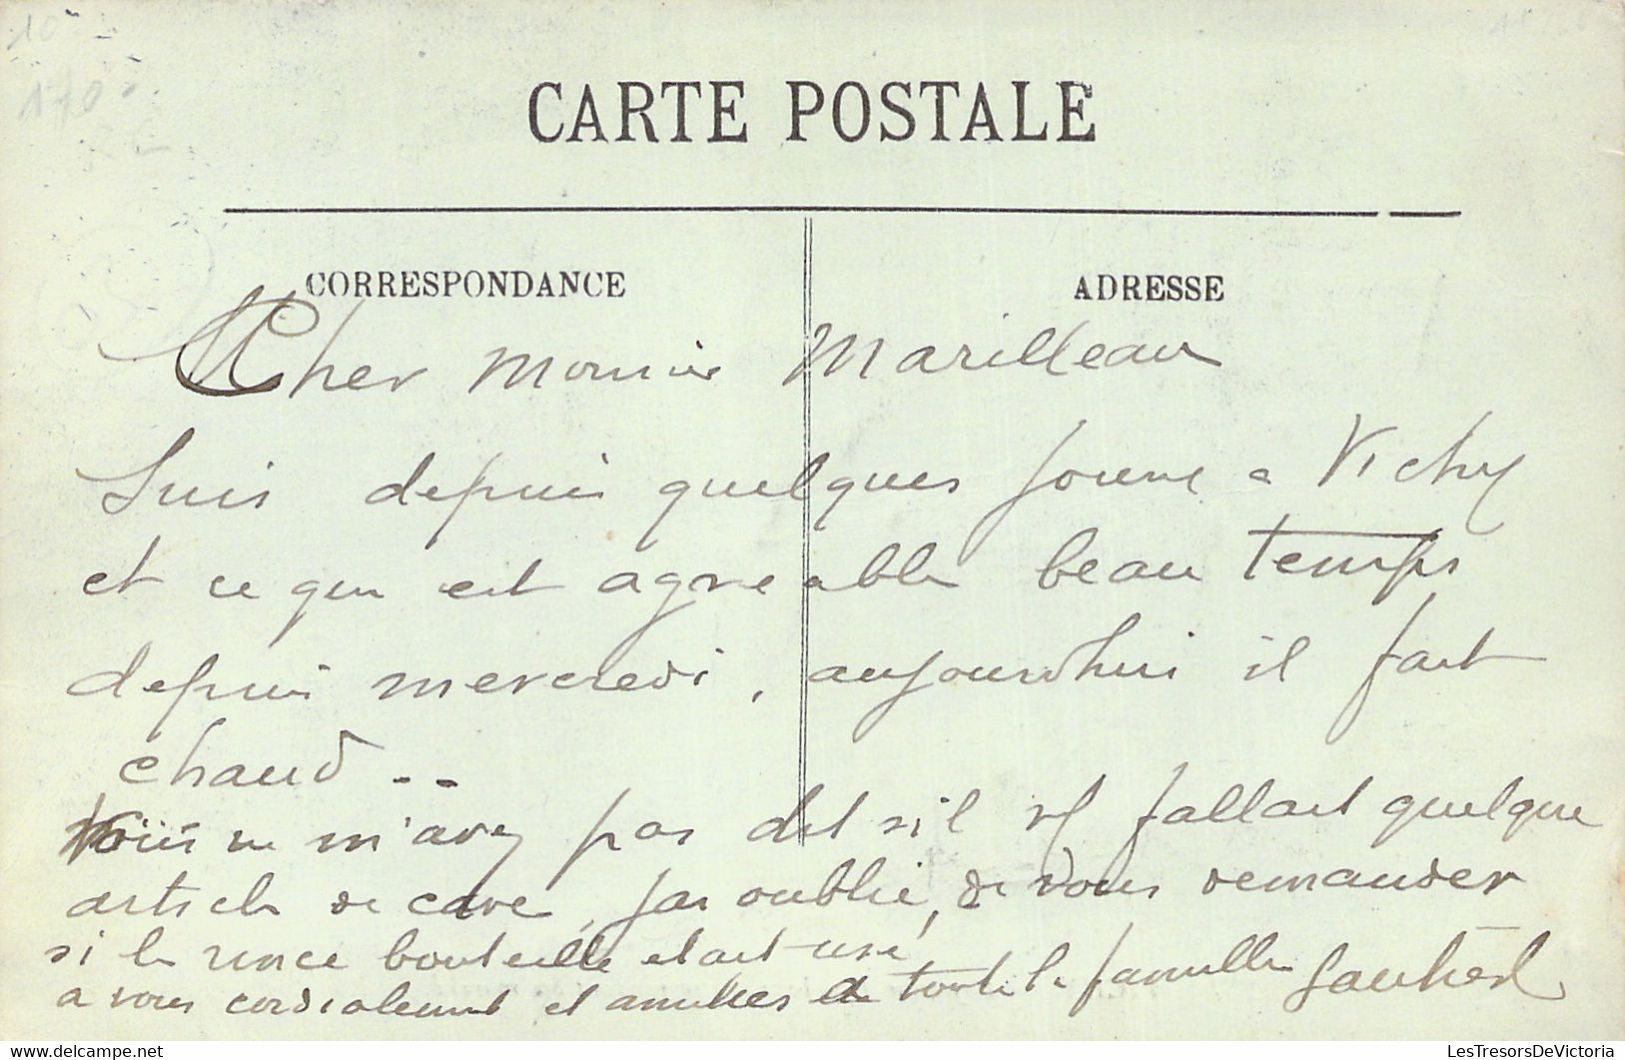 CARTE POSTALE
CORRESPONDANCE
ADRESSE
Cher Monsieur Marilleau
Suis depuis quelques jours a Vichy
et ce qui est agreable beau temps
depuis mercredi, aujourdhui il fait
chaud ..
Vous ne m'avez pas dit s'il fallait quelque
article de cave, j'ai oublié, de vous demander
si le rince bouteille etait usé
a vous cordialement et amities a toute la famille
LesTresorsDeVictoria